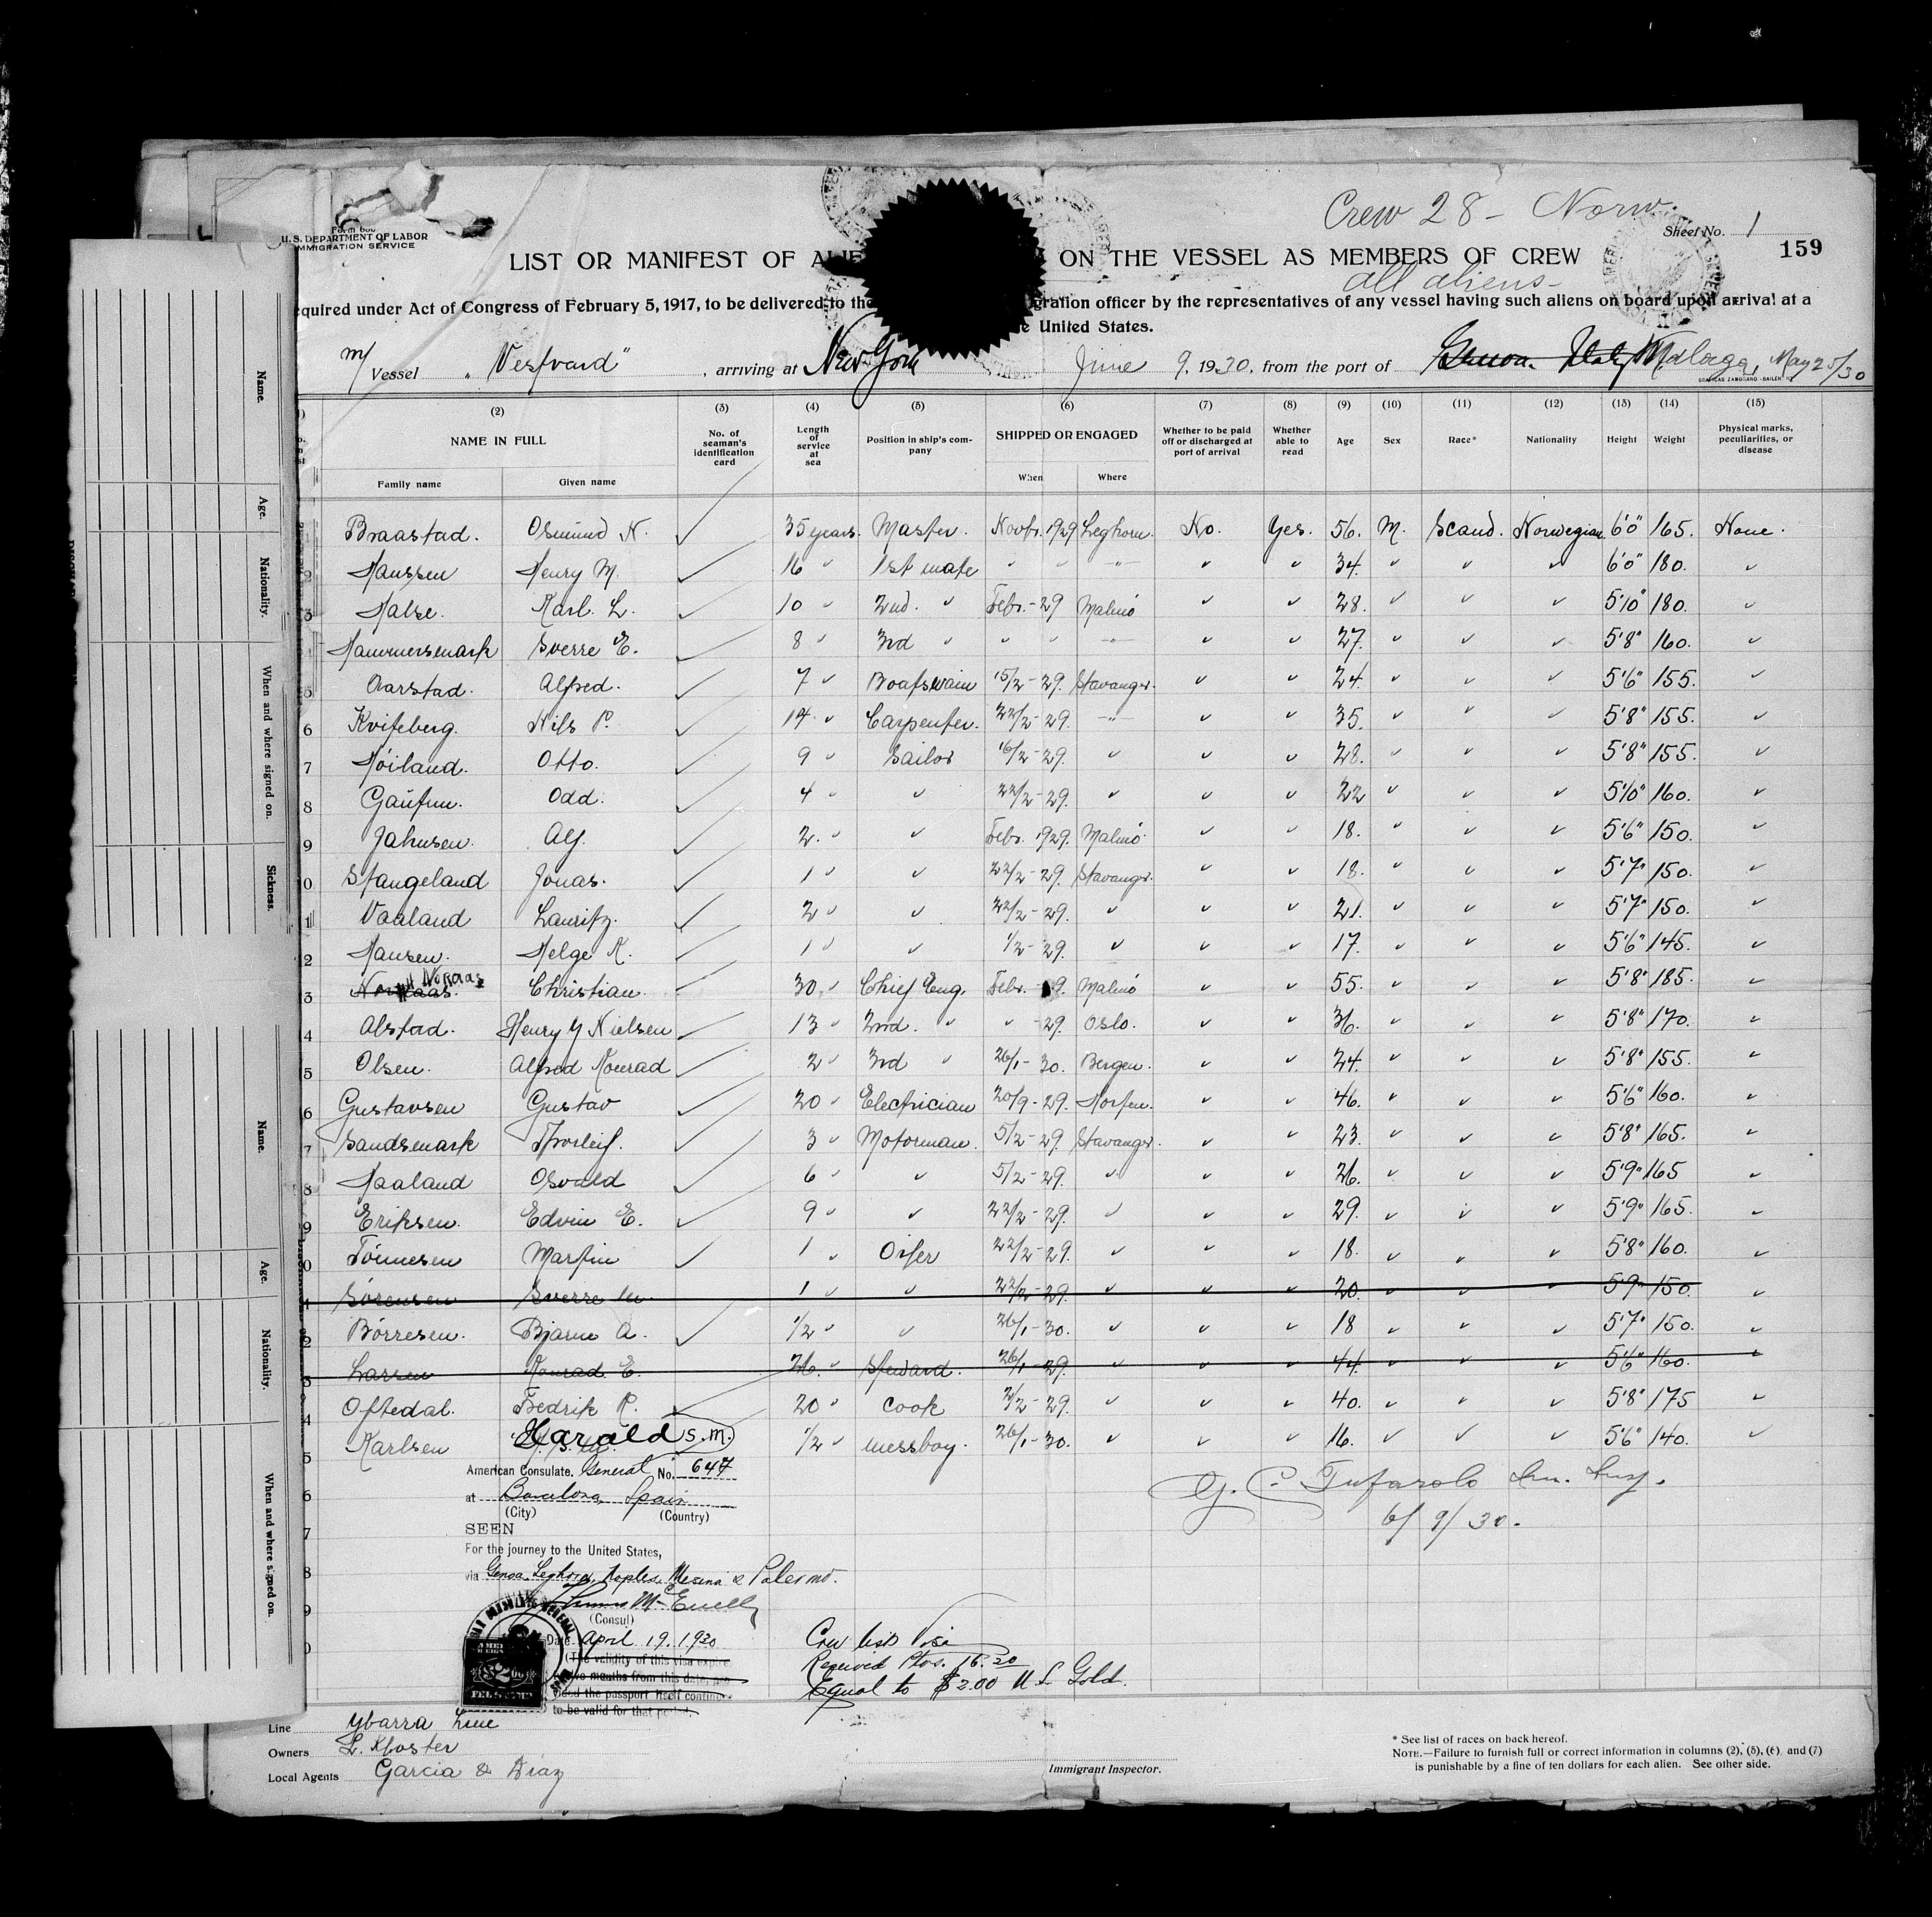 Crew 28 - Norw.
Form 680
U.S. DEPARTMENT OF LABOR
IMMIGRATION SERVICE
Sheet No. 1
159
LIST OR MANIFEST OF ON THE VESSEL AS MEMBERS OF CREW
all aliens -
equired under Act of Congress of February 5, 1917, to be delivered to the gration officer by the representatives of any vessel having such aliens on board upon arrival at a
United States.
M/ Vessel "Vestvard", arriving at New York June 9, 1930, from the port of Genoa, Italy Malaga, May 25/30
(2) (3) (4) (5) (6) (7) (8) (9) (10) (11) (12) (13) (14) (15)
NAME IN FULL No. of seaman's identification card Length of service at sea Position in ship's company SHIPPED OR ENGAGED Whether to be paid off or discharged at port of arrival Whether able to read Age Sex Race* Nationality Height Weight Physical marks, peculiarities, or disease
Family name Given name When Where
Braastad. Osmund N. ✓ 35 years. Master. Novbr. 1929 Leghorn. No. Yes. 56. M. Scand. Norwegian. 6'0" 165. None.
2 Hanssen Henry M. ✓ 16 " 1st mate " " -"- " " 34. " " " 6'0" 180. "
3 Halse. Karl L. ✓ 10 " 2nd. " Febr. - 29 Malmö " " 28. " " " 5'10" 180. "
Hammersmark Sverre E. ✓ 8 " 3rd " " " -"- " " 27. " " " 5'8" 160. "
5 Aarstad. Alfred. ✓ 7 " Boatswain 15/2 - 29. Stavanger. " " 24. " " " 5'6" 155. "
6 Kvifeberg. Nils P. ✓ 14. " Carpenter. 22/2 - 29. -"- " " 35. " " " 5'8" 155. "
7 Höiland. Otto. ✓ 9 " Sailor 16/2 - 29. " " " 28. " " " 5'8" 155. "
8 Odd. ✓ 4 " " 22/2 - 29. " " " 22 " " " 5'10" 160. "
9 Jahnsen. Alf. ✓ 2. " " Febr. 1929. Malmö " " 18. " " " 5'6" 150. "
10 Stangeland Jonas. ✓ 1 " " 22/2 - 29. Stavanger. " " 18. " " " 5'7" 150. "
1 Vaaland Lauritz. ✓ 2 " " 22/2 - 29. " " " 21. " " " 5'7" 150. "
2 Hansen. Helge K. ✓ 1 " " 1/2 - 29. " " " 17. " " " 5'6" 145. "
3 Noraas Christian. ✓ 30. " Chief Eng. Febr. - 9. Malmö " " 55. " " " 5'8 185. "
4 Alstad. Henry Y Nielsen ✓ 13 " 2nd. " " - 29. Oslo. " " 36. " " " 5'8" 170. "
5 Olsen. Alfred Konrad ✓ 2 " 3rd " 26/1 - 30. Bergen. " " 24. " " " 5'8" 155. "
6 Gustavsen Gustav ✓ 20 " Electrician 20/9 - 29. Horten. " " 46. " " " 5'6" 160. "
7 Sandsmark Thorleif. ✓ 3 " Motorman. 5/2 - 29. Stavanger. " " 23. " " " 5'8" 165. "
8 Haaland Osvald ✓ 6 " " 5/2 - 29. " " " 26. " " " 5'9" 165 "
9 Eriksen. Edvin E. ✓ 9 " " 22/2 - 29. " " " 29. " " " 5'9" 165. "
0 Tönnesen Martin ✓ 1 " Oiler 22/2 - 29. " " " 18. " " " 5'8" 160. "
1 Sörensen Sverre M. 1 " " 22/2 - 29. " " " 20. " " " 5'9" 150. "
2 Börresen. Bjarne A. ✓ 1/2 " " 26/1 - 30. " " " 18 " " " 5'7" 150. "
3 Larsen Konrad E. 26. " Steward. 26/1 - 29. " " " 44. " " " 5'6" 160. "
4 Oftedal. Fredrik R. ✓ 20 " Cook 2/2 - 29. " " " 40. " " " 5'8" 175 "
5 Karlsen Harald S.M. 1/2 " messboy. 26/1 - 30. " " " 16. " " " 5'6" 140. "
American Consulate General No. 647
at Barcelona Spain
(City) (Country)
G. C. Tufarolo Im. Insp.
6/9/30.
SEEN
For the journey to the United States,
via Genoa, Leghorn, Naples, Mesina & Palermo.
(Consul)
Date. April 19. 1930
(The validity of this visa expires
months from this date,
the passport itself continues
to be valid for that period.
Crew list Visa
Received Ptas. 16.20
Equal to $2.00 U S. Gold.
Line Ybarra Line
Owners L. Kloster
Local Agents Garcia & Diaz
Immigrant Inspector.
* See list of races on back hereof.
NOTE.—Failure to furnish full or correct information in columns (2), (5), (6) and (7)
is punishable by a fine of ten dollars for each alien. See other side.
Name.
Age.
Nationality.
When and where signed on.
Sickness.
Name.
Age.
Nationality.
When and where signed on.